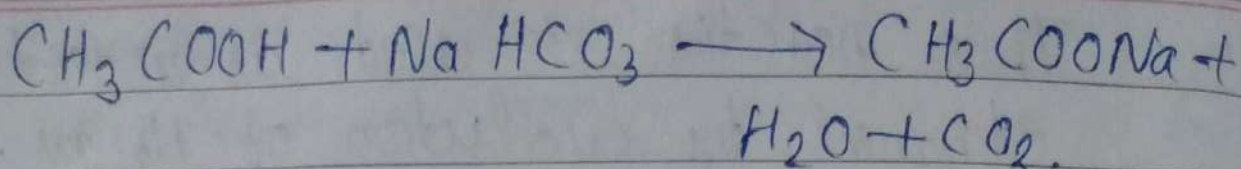 CH₃COOH + NaHCO₃ ⟶ CH₃COONa +
H₂O + CO₂.